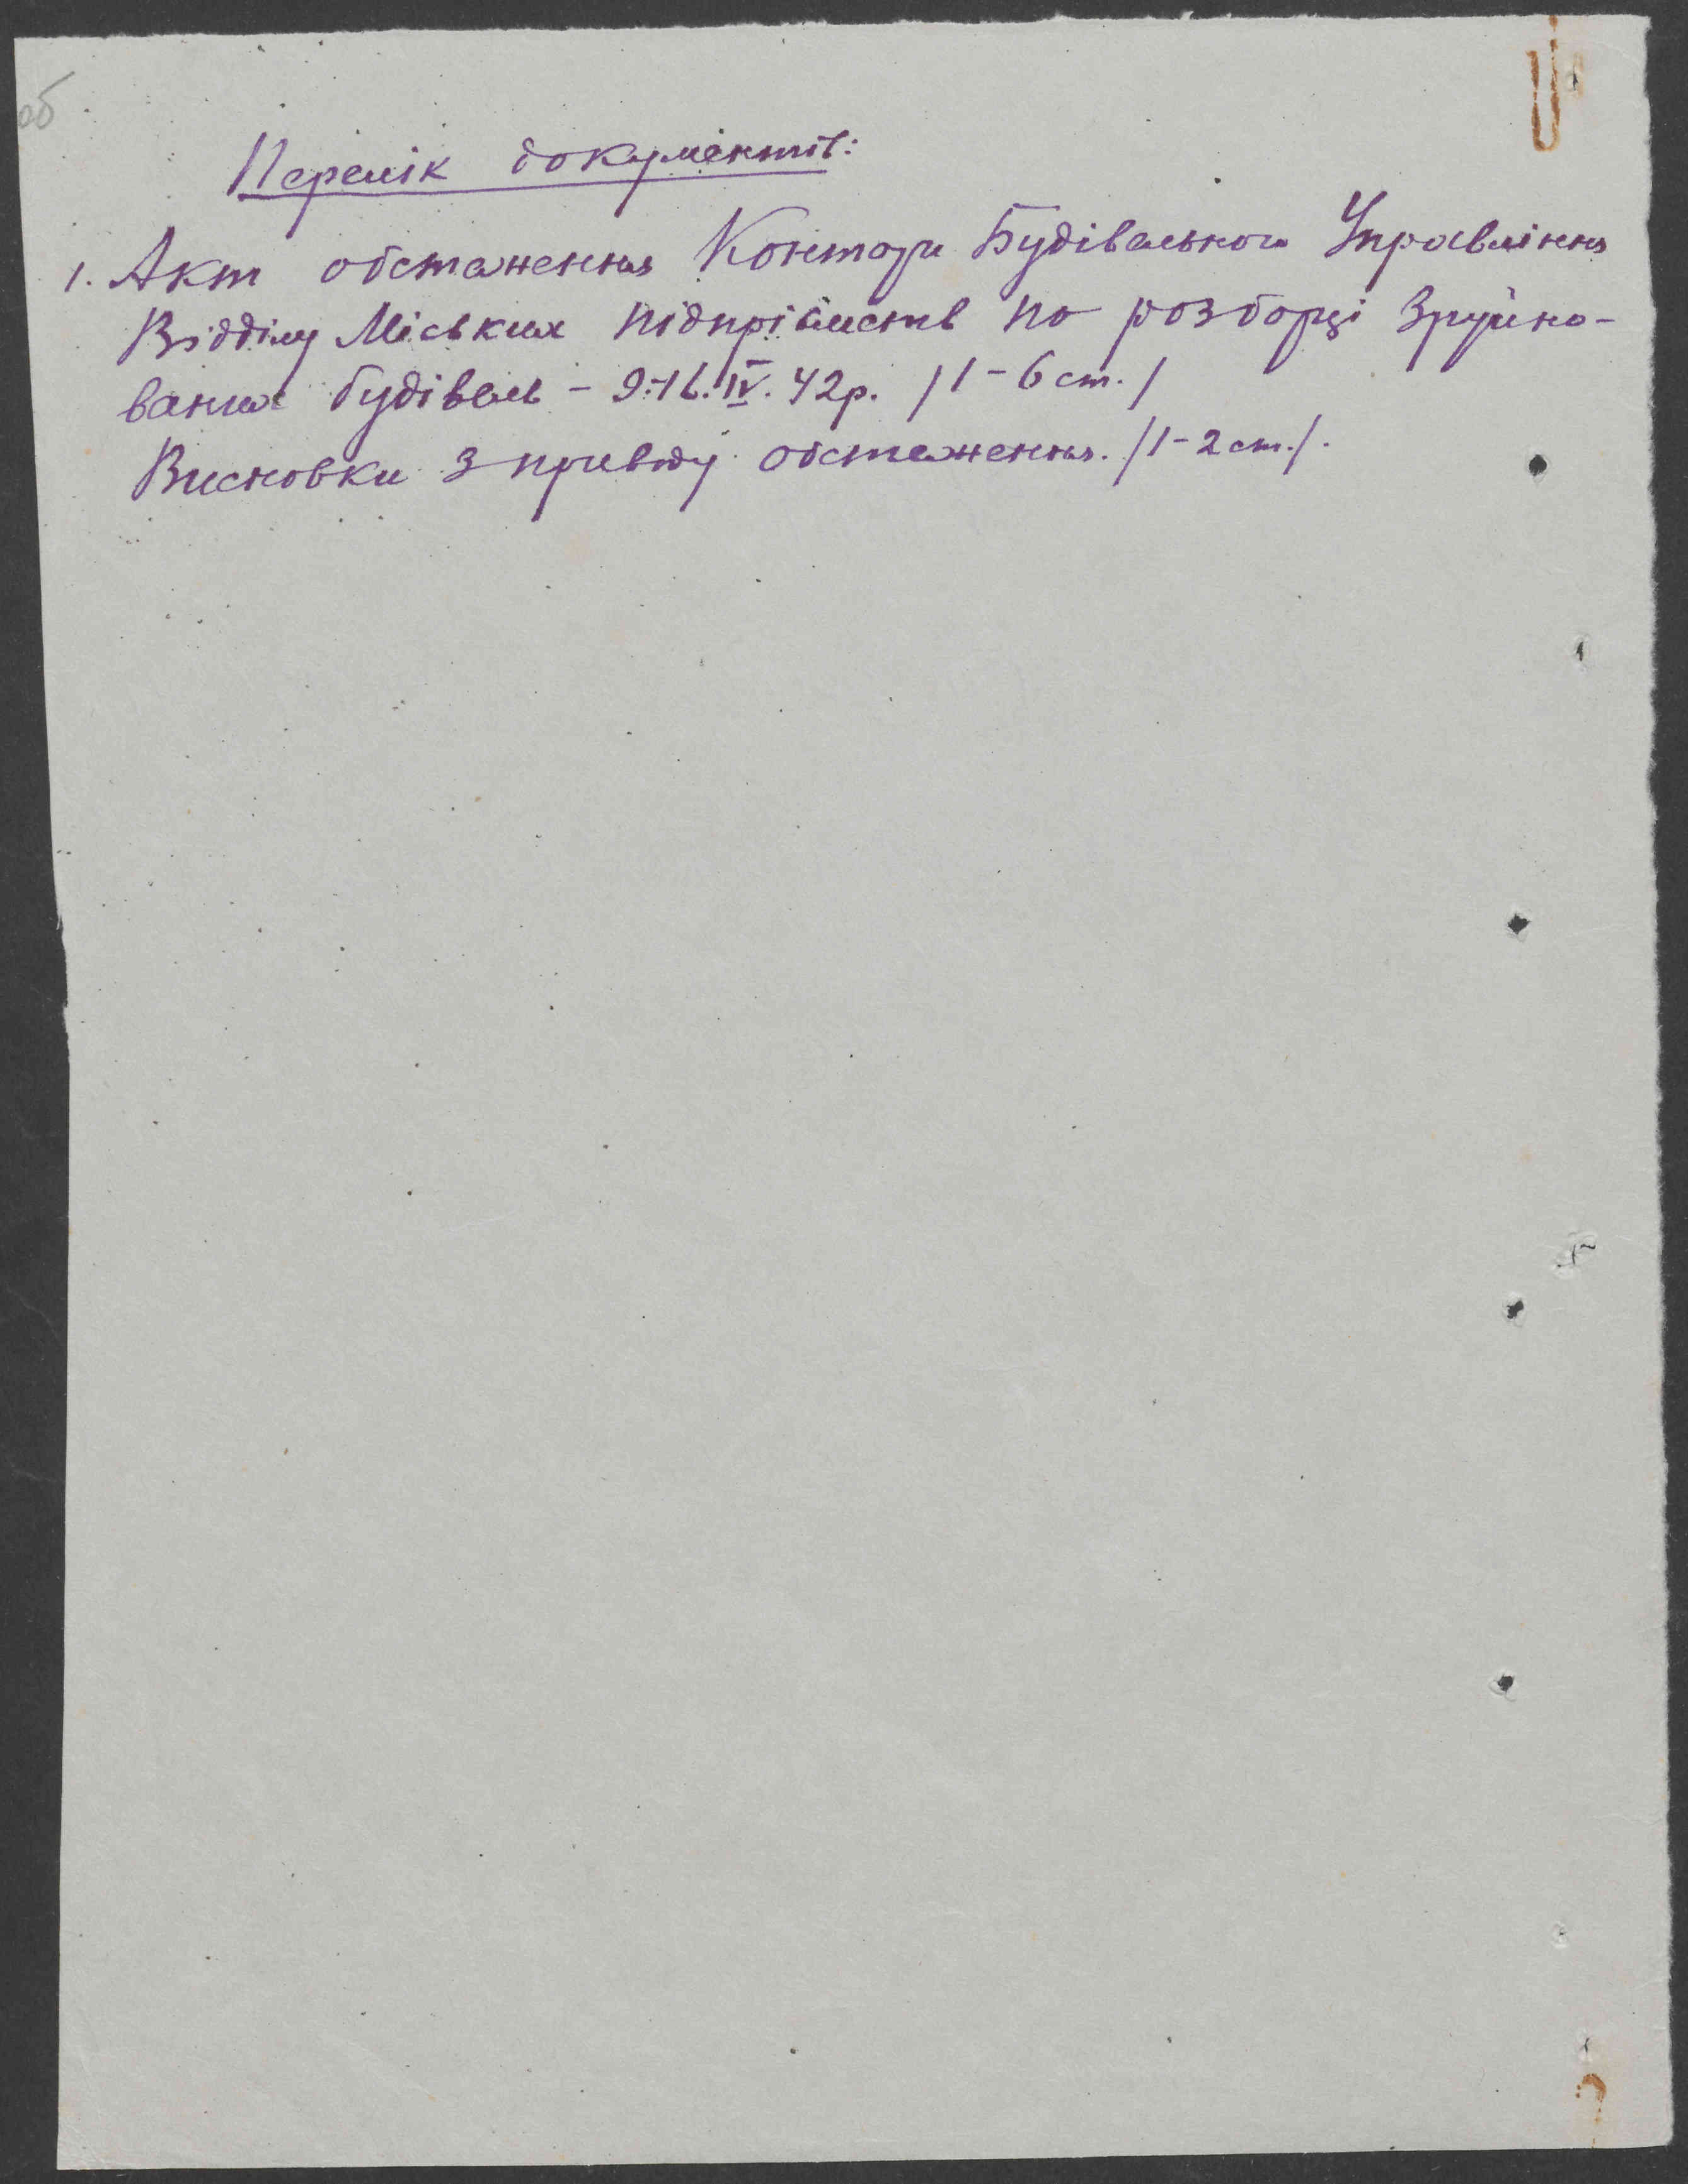 об
Перелік документів:
1. Акт обстеження Контори Будівельного Управління
Відділу Міських підпріємств по розборці зруйно-
ваних будівель - 9-16.IV.42р. /1-6 ст./
Висновки з приводу обстеження. /1-2 ст./.